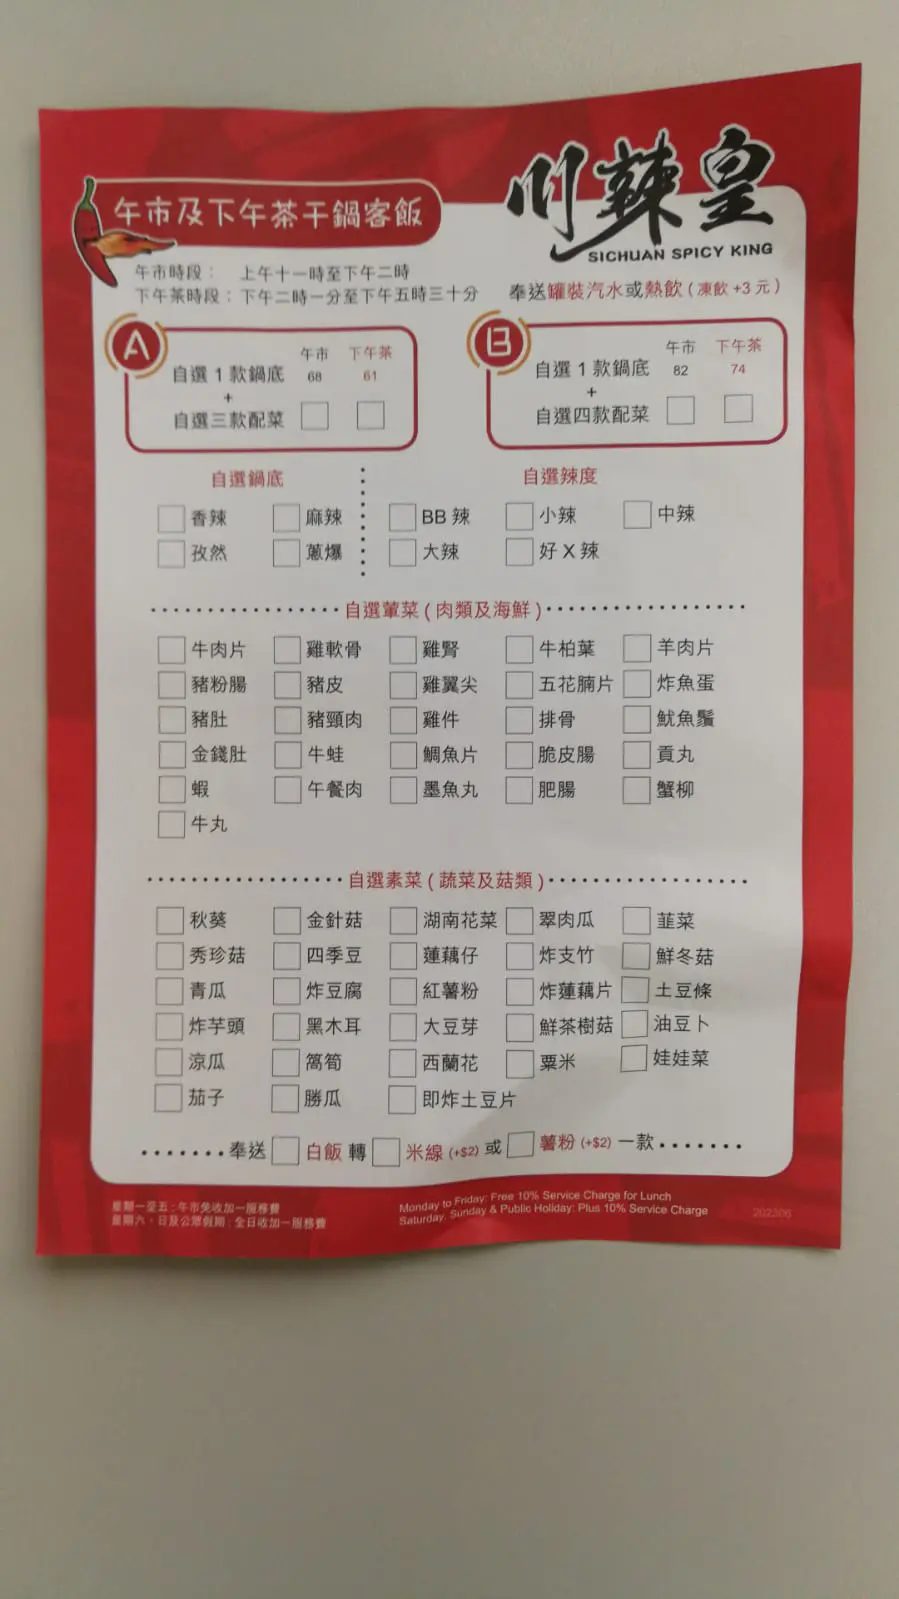 川辣皇
SICHUAN SPICY KING
午市及下午茶干鍋客飯
午市時段： 上午十一時至下午二時
下午茶時段：下午二時一分至下午五時三十分
奉送罐裝汽水或熱飲 ( 凍飲 +3 元 )
A
午市 下午茶
自選 1 款鍋底 68 61
+
自選三款配菜
B
午市 下午茶
自選 1 款鍋底 82 74
+
自選四款配菜
自選鍋底 自選辣度
香辣 麻辣 BB 辣 小辣 中辣
孜然 蔥爆 大辣 好 X 辣
自選葷菜 ( 肉類及海鮮 )
牛肉片 雞軟骨 雞腎 牛柏葉 羊肉片
豬粉腸 豬皮 雞翼尖 五花腩片 炸魚蛋
豬肚 豬頸肉 雞件 排骨 魷魚鬚
金錢肚 牛蛙 鯛魚片 脆皮腸 貢丸
蝦 午餐肉 墨魚丸 肥腸 蟹柳
牛丸
自選素菜 ( 蔬菜及菇類 )
秋葵 金針菇 湖南花菜 翠肉瓜 韮菜
秀珍菇 四季豆 蓮藕仔 炸支竹 鮮冬菇
青瓜 炸豆腐 紅薯粉 炸蓮藕片 土豆條
炸芋頭 黑木耳 大豆芽 鮮茶樹菇 油豆卜
涼瓜 萵筍 西蘭花 粟米 娃娃菜
茄子 勝瓜 即炸土豆片
奉送 白飯 轉 米線 (+$2) 或 薯粉 (+$2) 一款
星期一至五 : 午市免收加一服務費
星期六、日及公眾假期 : 全日收加一服務費
Monday to Friday: Free 10% Service Charge for Lunch
Saturday, Sunday & Public Holiday: Plus 10% Service Charge
202306